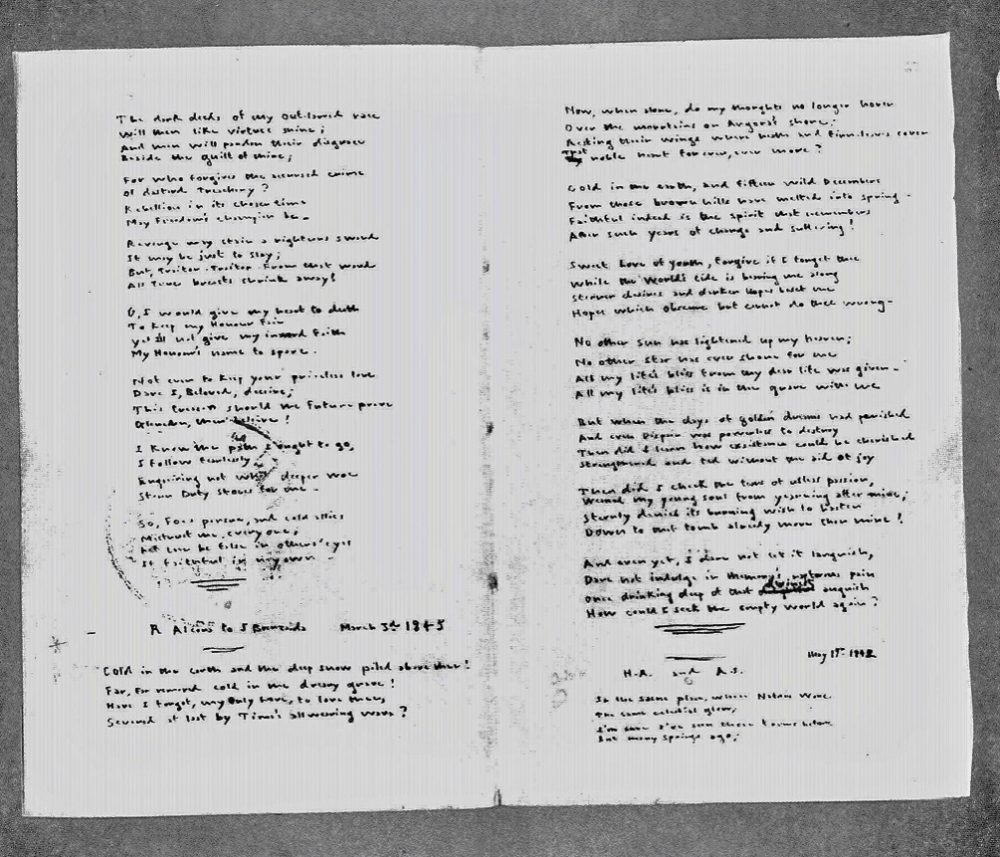 The dark deeds of my outlawed race
Will then like virtues shine;
And men will pardon their disgrace
Beside the guilt of mine;
For who forgives the accursed crime
Of dastard Treachery?
Rebellion in its chosen time
May Freedom's champion be -
Revenge may stain a righteous sword
It may be just to slay;
But, Traitor, Traitor - From that word
All True breasts shrink away!
O, I would give my heart to death
To keep my Honour Fair
yet I'll not give my inward Faith
My Honour's name to spare.
Not even to keep your priceless love
Dare I, Beloved, deceive;
This treason should the Future prove
Gleneden, then believe!
I know the path I ought to go,
I follow fearlessly
Enquiring not what deeper woe
Stern Duty stores for me -
So, Foes pursue, and cold allies
Mistrust me, every one;
Let me be False in others' eyes
If Faithful in my own -
R Alcona to J Brenzaida March 3rd 1845
Cold in the earth and the deep snow piled above thee!
Far, Far removed cold in the dreary grave!
Have I Forgot, my Only Love, to love thee,
Severed at last by Time's allwearing wave?
Now, when alone, do my thoughts no longer hover
Over the mountains on Angora's shore;
Resting their wings where heath and Fern-leaves cover
That noble heart For ever, ever more?
Cold in the earth, and fifteen wild Decembers
From those brown hills have melted into spring -
Faithful indeed is the spirit that remembers
After such years of change and suffering!
Sweet Love of youth, Forgive if I Forget thee
While the World's tide is bearing me along
Sterner desires and darker Hopes beset me
Hopes which obscure but cannot do thee wrong -
No other Sun has lightened up my heaven;
No other Star has ever shone for me
All my life's bliss From thy dear life was given -
All my life's bliss is in the grave with thee
But when the days of golden dreams had perished
And even Despair was powerless to destroy
Then did I learn how existence could be cherished
Strengthened and Fed without the aid of joy
Then did I check the tears of useless passion,
Weaned my young soul from yearning after thine;
Sternly denied its burning wish to hasten
Down to that tomb already more than mine!
And even yet, I dare not let it languish,
Dare not indulge in Memory's rapturous pain
Once drinking deep of that divinest anguish
How could I seek the empty world again?
H.A. and A.S. May 17th 1842
In the same place, when Nature wore
The same celestial glow,
I'm sure I've seen these forms before
But many springs ago;